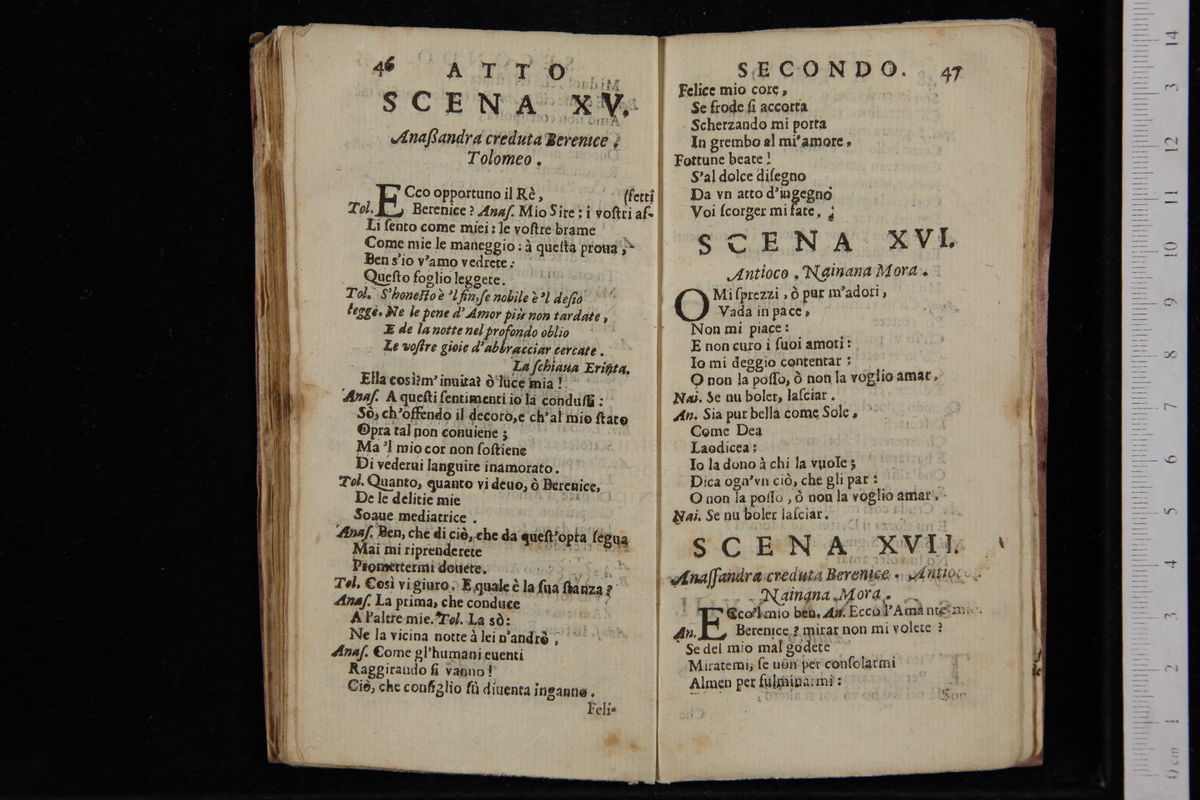 46 ATTO
SCENA XV.
Anaßandra creduta Berenice,
Tolomeo.
ECco opportuno il Rè, (fetti
Tol. Berenice? Anaſ. Mio Sire: i voſtri aſ-
Li ſento come miei: le voſtre brame
Come mie le maneggio: à queſta proua,
Ben s'io v'amo vedrete:
Queſto foglio leggete.
Tol. S'honeſto è 'l fin, ſe nobile è 'l deſio
legge. Ne le pene d'Amor più non tardate,
E de la notte nel profondo oblio
Le voſtre gioie d'abbracciar cercate.
La ſchiaua Erinta.
Ella così? m'inuita? ò luce mia!
Anaſ. A queſti ſentimenti io la conduſſi:
Sò, ch'offendo il decoro, e ch'al mio ſtato
Opra tal non conuiene;
Ma 'l mio cor non ſoſtiene
Di vederui languire inamorato.
Tol. Quanto, quanto vi deuo, ò Berenice,
De le delitie mie
Soaue mediatrice.
Anaſ. Ben, che di ciò, che da queſt'opra ſegua
Mai mi riprenderete
Promettermi douete.
Tol. Così vi giuro. E quale è la ſua ſtanza?
Anaſ. La prima, che conduce
A l'altre mie. Tol. La sò:
Ne la vicina notte à lei n'andrò.
Anaſ. Come gl'humani euenti
Raggirando ſi vanno!
Ciò, che conſiglio fù diuenta inganno.
Feli-
SECONDO. 47
Felice mio core,
Se frode ſi accorta
Scherzando mi porta
In grembo al mi'amore,
Fortune beate!
S'al dolce diſegno
Da vn atto d'ingegno
Voi ſcorger mi fate,
SCENA XVI.
Antioco. Nainana Mora.
O Mi ſprezzi, ò pur m'adori,
Vada in pace,
Non mi piace:
E non curo i ſuoi amori:
Io mi deggio contentar:
O non la poſſo, ò non la voglio amar.
Nai. Se nu boler, laſciar.
An. Sia pur bella come Sole,
Come Dea
Laodicea:
Io la dono à chi la vuole;
Dica ogn'vn ciò, che gli par:
O non la poſſo, ò non la voglio amar.
Nai. Se nu boler laſciar.
SCENA XVII.
Anaſſandra creduta Berenice. Antioco.
Nainana Mora.
ECco'l mio ben. An. Ecco l'Amante mio.
An. Berenice? mirar non mi volete?
Se del mio mal godete
Miratemi, ſe non per conſolarmi
Almen per fulminarmi:
Non